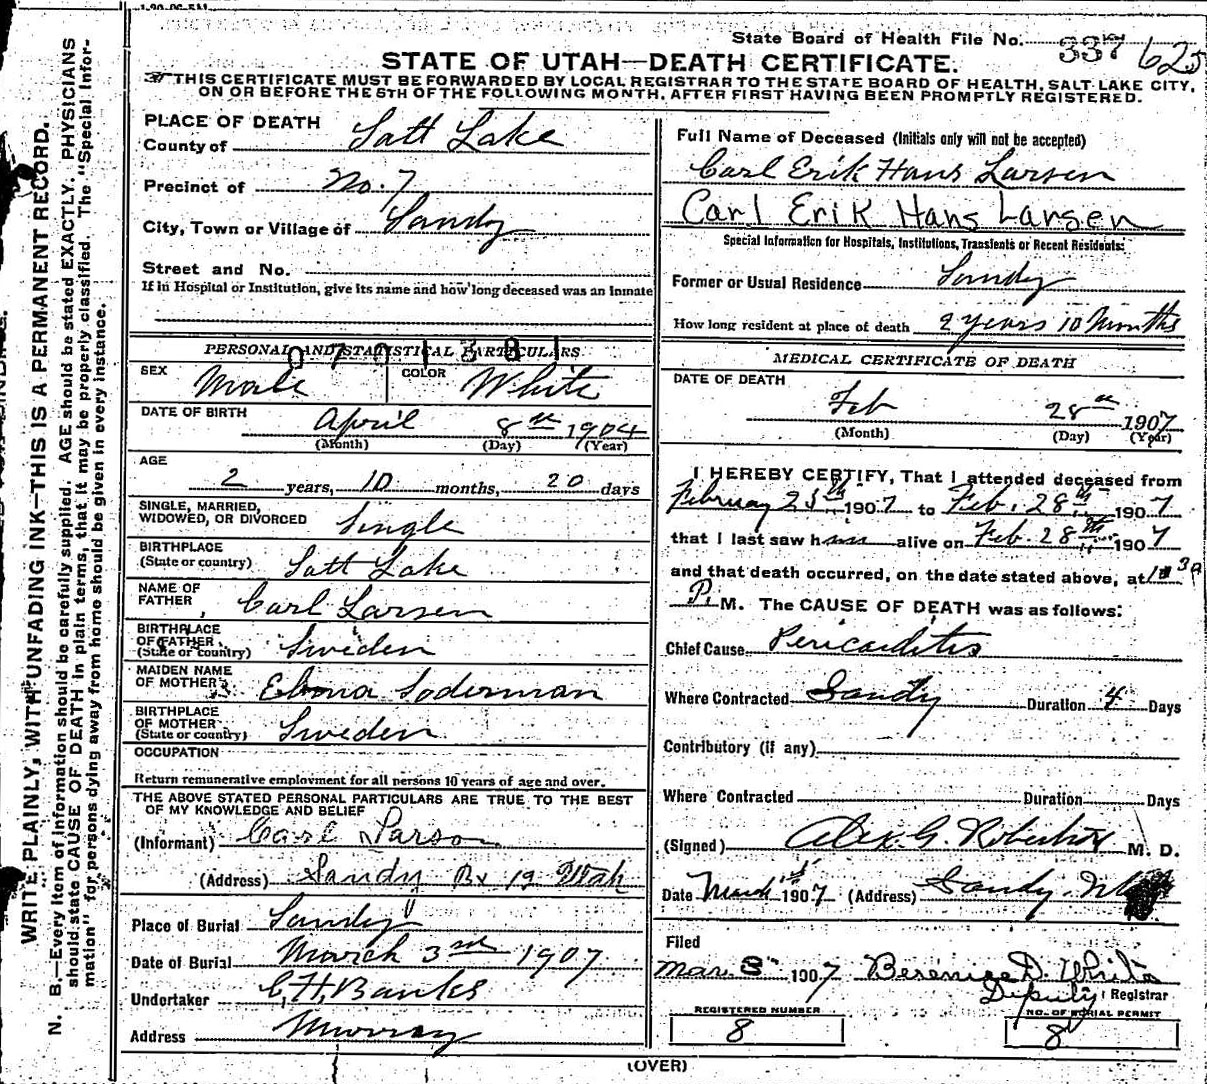 State Board of Health File No. 337 625
STATE OF UTAH—DEATH CERTIFICATE.
THIS CERTIFICATE MUST BE FORWARDED BY LOCAL REGISTRAR TO THE STATE BOARD OF HEALTH, SALT LAKE CITY,
ON OR BEFORE THE 5TH OF THE FOLLOWING MONTH, AFTER FIRST HAVING BEEN PROMPTLY REGISTERED.
WRITE PLAINLY, WITH UNFADING INK—THIS IS A PERMANENT RECORD.
N. B.—Every item of information should be carefully supplied. AGE should be stated EXACTLY. PHYSICIANS
should state CAUSE OF DEATH in plain terms, that it may be properly classified. The "Special Infor-
mation" for persons dying away from home should be given in every instance.
PLACE OF DEATH
County of Salt Lake
Precinct of No. 7
City, Town or Village of Sandy
Street and No.
If in Hospital or Institution, give its name and how long deceased was an Inmate
PERSONAL AND STATISTICAL PARTICULARS
0701381
SEX Male COLOR White
DATE OF BIRTH April 8th 1904
(Month) (Day) (Year)
AGE
2 years, 10 months, 20 days
SINGLE, MARRIED,
WIDOWED, OR DIVORCED Single
BIRTHPLACE
(State or country) Salt Lake
NAME OF
FATHER Carl Larsen
BIRTHPLACE
OF FATHER
(State or country) Sweden
MAIDEN NAME
OF MOTHER Soderman
BIRTHPLACE
OF MOTHER
(State or country) Sweden
OCCUPATION
Return remunerative employment for all persons 10 years of age and over.
THE ABOVE STATED PERSONAL PARTICULARS ARE TRUE TO THE BEST
OF MY KNOWLEDGE AND BELIEF
(Informant) Carl Larson
(Address) Sandy Bx 19 Utah
Place of Burial Sandy
Date of Burial March 3rd 1907
Undertaker C. H. Banks
Address Murray
Full Name of Deceased (Initials only will not be accepted)
Carl Erik Hans Larsen
Carl Erik Hans Larsen
Special Information for Hospitals, Institutions, Transients or Recent Residents:
Former or Usual Residence Sandy
How long resident at place of death 2 years 10 Months
MEDICAL CERTIFICATE OF DEATH
DATE OF DEATH
Feb 28th 1907
(Month) (Day) (Year)
I HEREBY CERTIFY, That I attended deceased from
February 25th 1907 to Feb. 28th 1907
that I last saw him alive on Feb. 28th 1907
and that death occurred, on the date stated above, at
P. M. The CAUSE OF DEATH was as follows:
Chief Cause Pericarditis
Where Contracted Sandy Duration 4 Days
Contributory (if any)
Where Contracted Duration Days
(Signed) Alex. G. Robertson M. D.
Date March 1st 1907 (Address) Sandy
Filed
Mar. 3 1907 Berenice D. White
Deputy Registrar
REGISTERED NUMBER
8
NO. OF BURIAL PERMIT
8
(OVER)